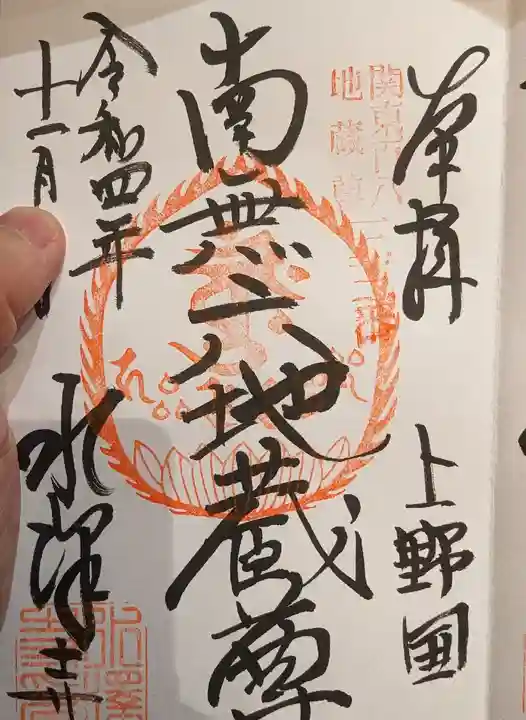 奉拝
上野国
関東百八
地蔵尊
南無六地蔵尊
令和四年
十一月
水澤寺